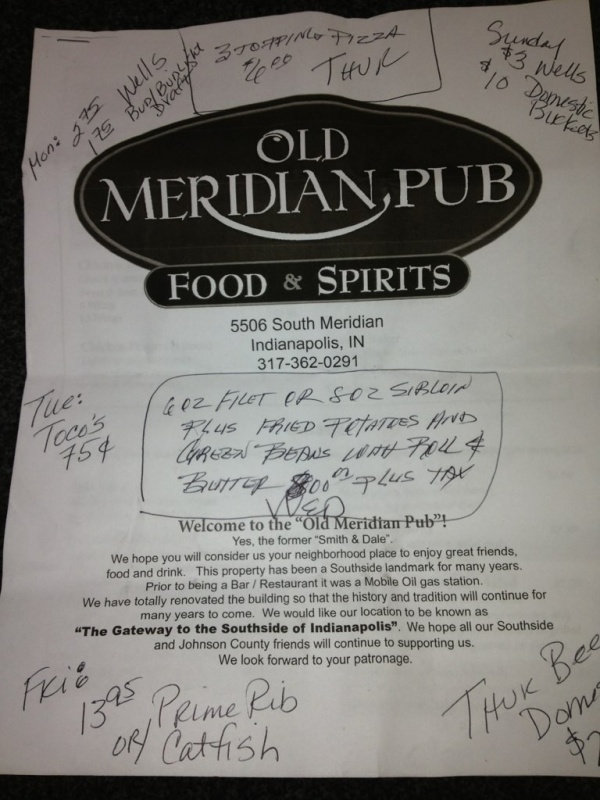 Mon: 2.75 Wells
1.75 Bud/Bud Light
Drafts
3 TOPPING PIZZA
$6.00
THUR
Sunday
$3 Wells
$10 Domestic
Buckets
OLD
MERIDIAN PUB
FOOD & SPIRITS
5506 South Meridian
Indianapolis, IN
317-362-0291
Tue:
Toco's
75¢
6 OZ FILET OR 8 OZ SIRLOIN
PLUS FRIED POTATOES AND
GREEN BEANS WITH ROLL &
BUTTER PLUS TAX
WED
Welcome to the "Old Meridian Pub"!
Yes, the former "Smith & Dale".
We hope you will consider us your neighborhood place to enjoy great friends,
food and drink. This property has been a Southside landmark for many years.
Prior to being a Bar / Restaurant it was a Mobile Oil gas station.
We have totally renovated the building so that the history and tradition will continue for
many years to come. We would like our location to be known as
"The Gateway to the Southside of Indianapolis". We hope all our Southside
and Johnson County friends will continue to supporting us.
We look forward to your patronage.
FRI:
13.95 Prime Rib
OR/ Catfish
THUR Bee
Dome
$